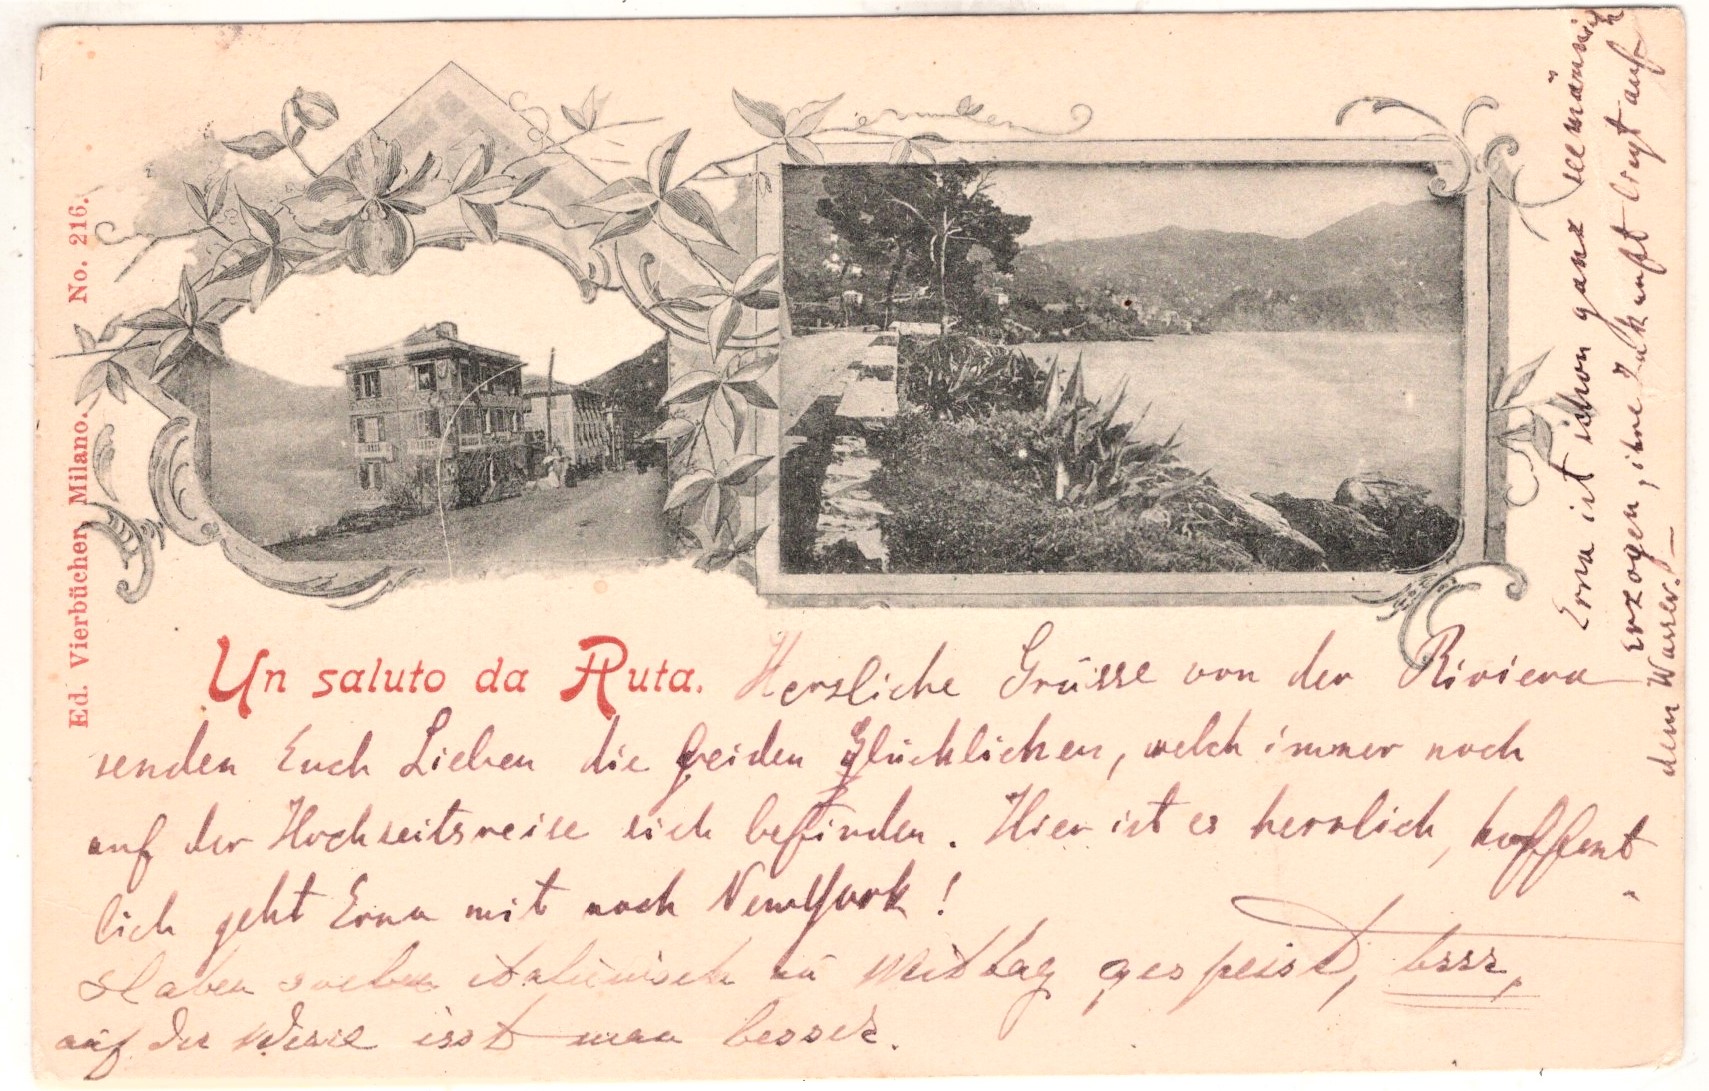 Ed. Vierbücher, Milano. No. 216.
Un saluto da Ruta. Herzliche Grüsse von der Riviera
senden Euch Lieben die beiden Glücklichen, welch immer noch
auf der Hochzeitsreise sich befinden. Hier ist es herrlich, hoffent
lich geht Erna mit nach NewYork!
Haben soeben italienisch zu Mittag gespeist, brrr,
auf der Wiese isst man besser.
Erna ist schon ganz seemännisch
erzogen, ihre Zukunft liegt auf
dem Wasser! –